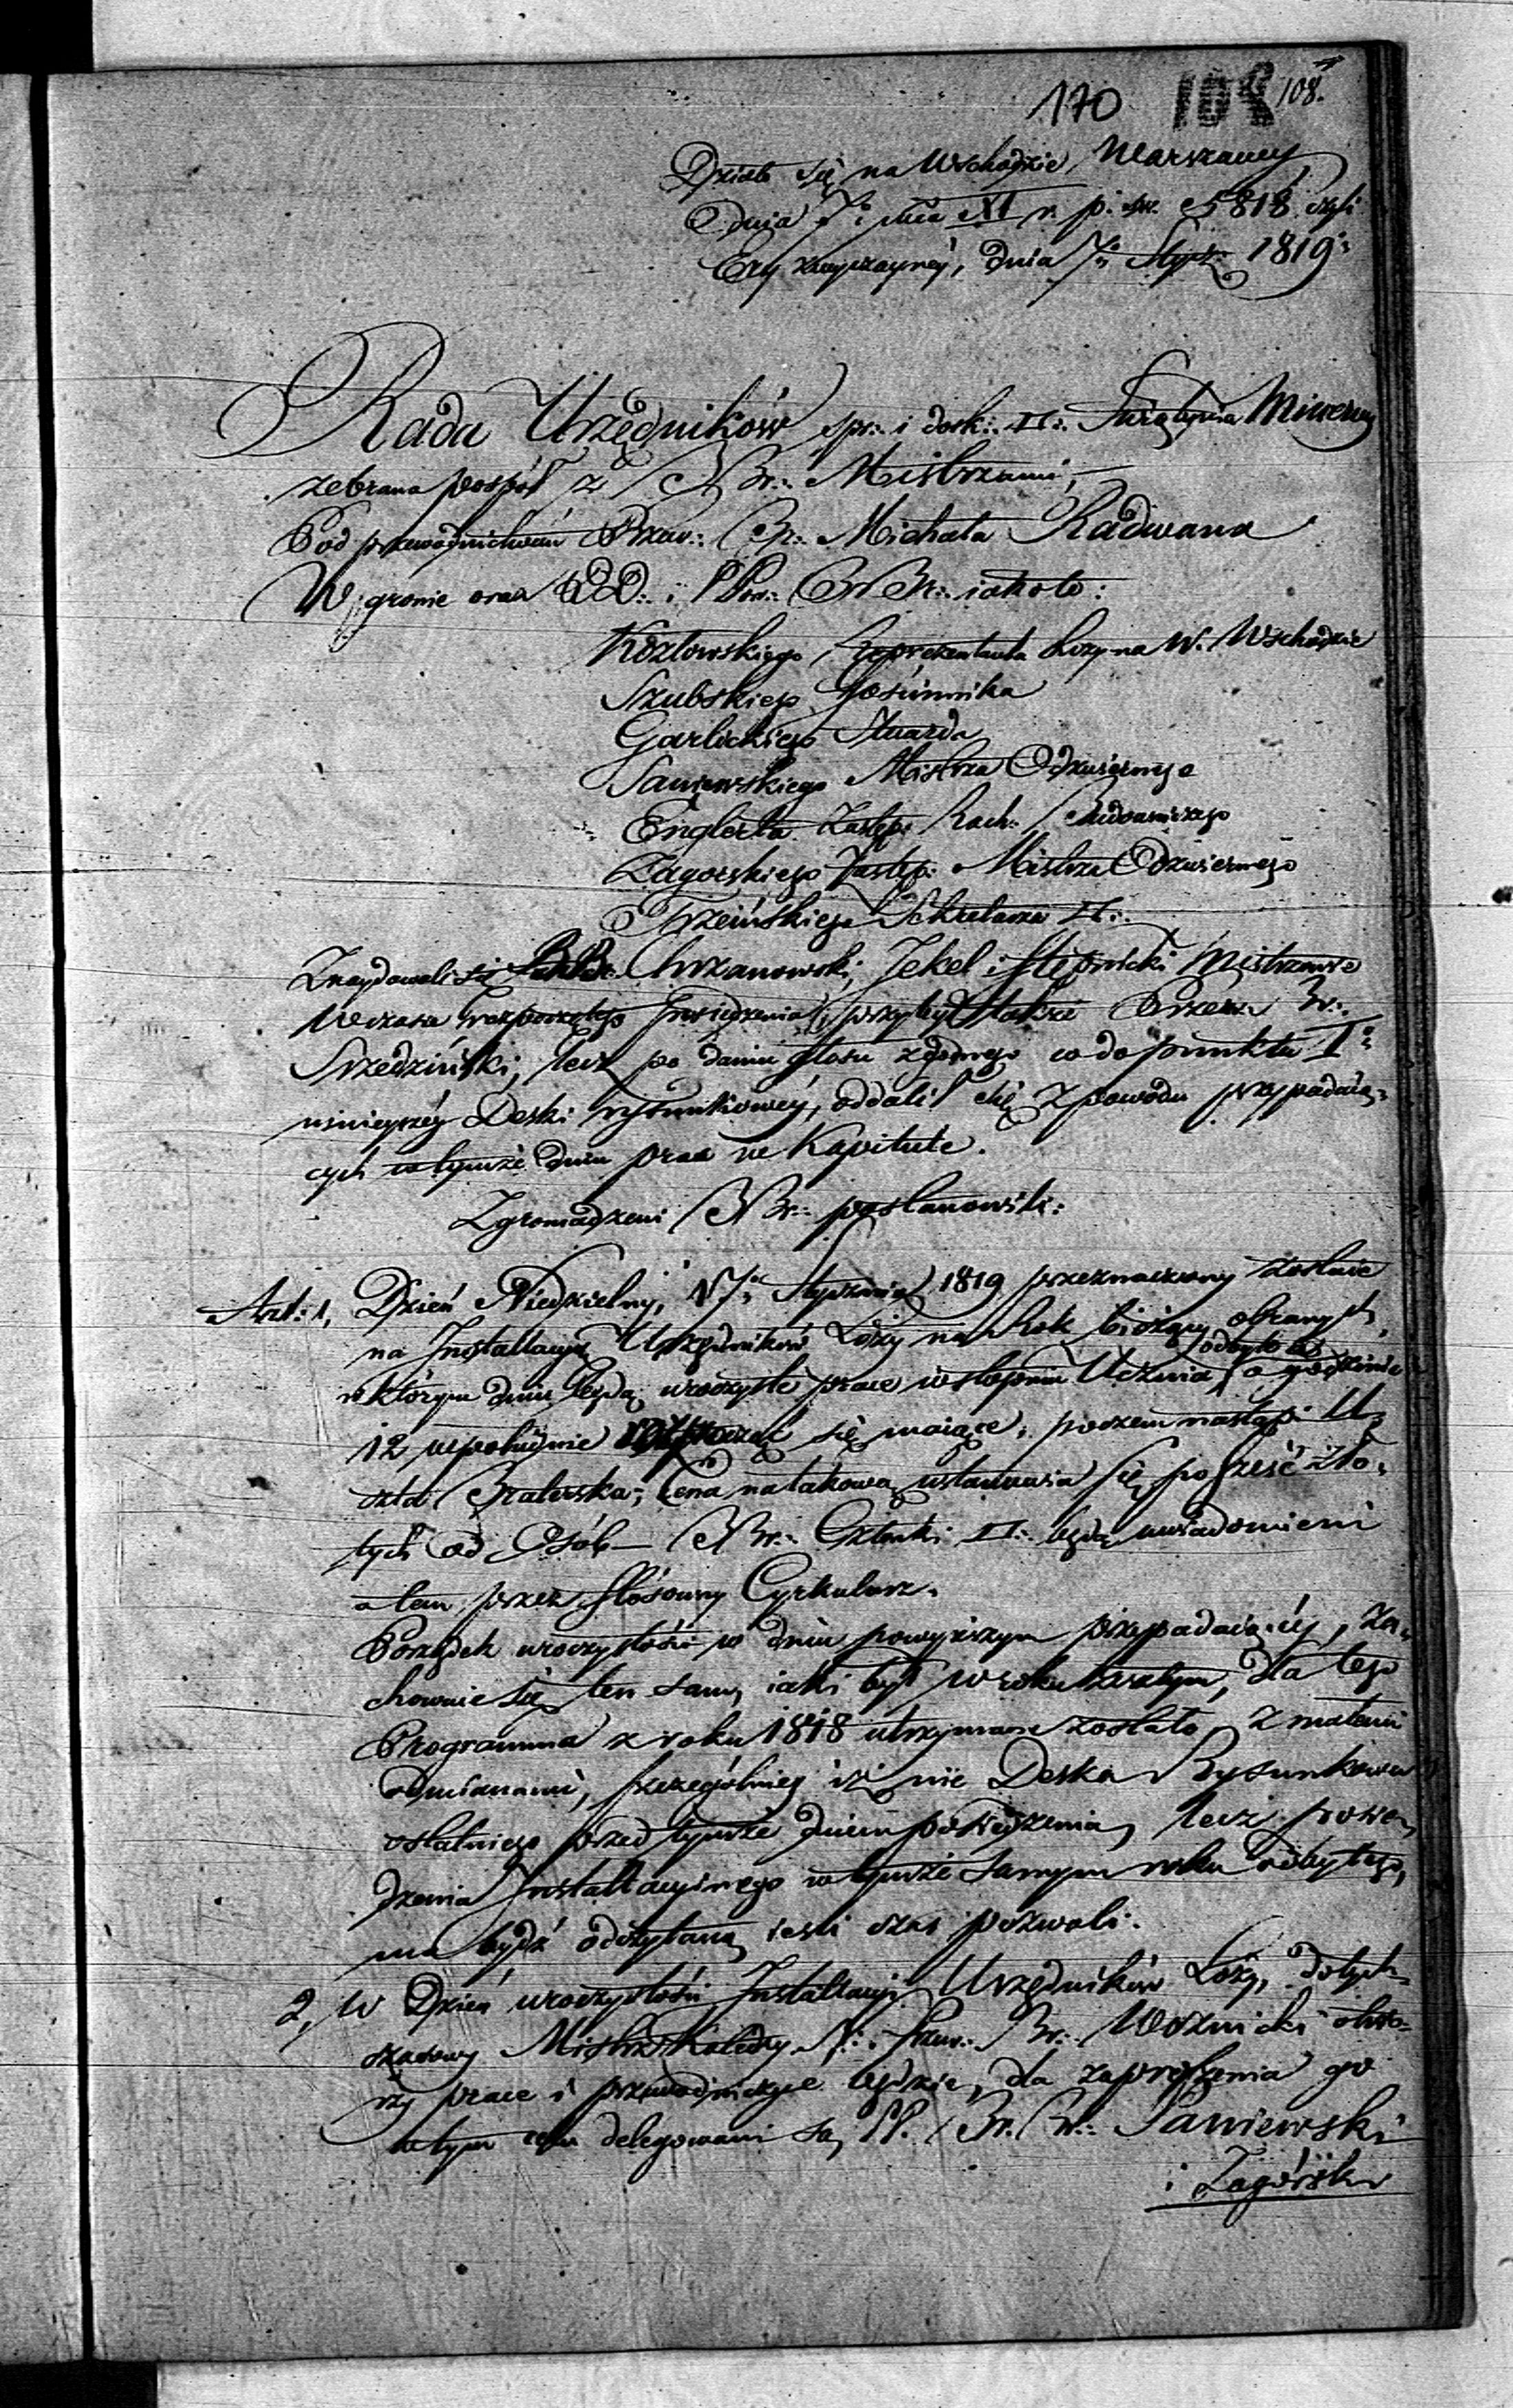 170 108 108.
Działo się na Wschodzie Warszawy
Dnia 7: mca XI r. p. św. 5818 czyli
Ery zwyczayney, dnia 7: Stycz: 1819:
Rada Urzędników spr: i dosk: □: Swiątynia Minerwy
zebrana pospół z BBr: Mistrzami,
Pod przewodnictwem Przew: Br: Michała Radwana
W gronie oraz DD: i PPrz: BBr: iakoto:
Kozłowskiego Reprezentanta Loży na W. Wschodzie
Szubskiego Jałmużnika
Garlickiego Stuarda
Saniewskiego Mistrza Odzwiernego
Englerta Zastęp: Rach:
Zagorskiego Zastęp: Mistrza Odzwiernego
Trzcińskiego Sekretarza □:
Znaydowali się BBr: Chrzanowski, Jekel i Stępnicki Mistrzowie
W czasie rozpoczętego posiedzenia, przybył także Przew: Br:
Srzedziński, lecz po daniu głosu zgodnego co do punktu I:
ninieyszéy Deski rysunkowéy, oddalił się z powodu przypadaią-
cych w tymże dniu prac w Kapitule.
Zgromadzeni BBr: postanowili:
Art: 1, Dzień Niedzielny, 17: Stycznia 1819 przeznaczony zostaie
na Installacyą Urzędników Loży na Rok bieżący obranych,
w którym dniu będą uroczyste prace w stopniu Ucznia odbyte o godzinie
12 w południe rozpocząć się maiące; poczem nastąpi U-
czta Braterska; Cena na takową ustanawia się po sześć zło-
tych od Osób — BBr: Członki □: będą uwiadomieni
o tem przez stósowny Cyrkularz.
Porządek uroczystości w dniu powyższym przypadaiącéy, za-
chowuie się ten sam, iaki był w roku zeszłym, dla tego
Programma z roku 1818 utrzymane zostało z małemi
odmianami, szczególniey iż nie Deska Rysunkowa
ostatniego przed tymże dniem posiedzenia, lecz posie-
dzenia Installacyinego w tymże samym roku odbytego,
ma bydź odczytana, iesli czas pozwoli.
2, W Dzień uroczystości Installacyi Urzędników Loży, dotych-
czasowy Mistrz Katedry N: Przew: Br: Woznicki otwo-
rzy prace i przewodniczyć będzie, dla zaproszenia go
w tym celu delegowani są PP. Br. Br: Saniewski
i Zagórski